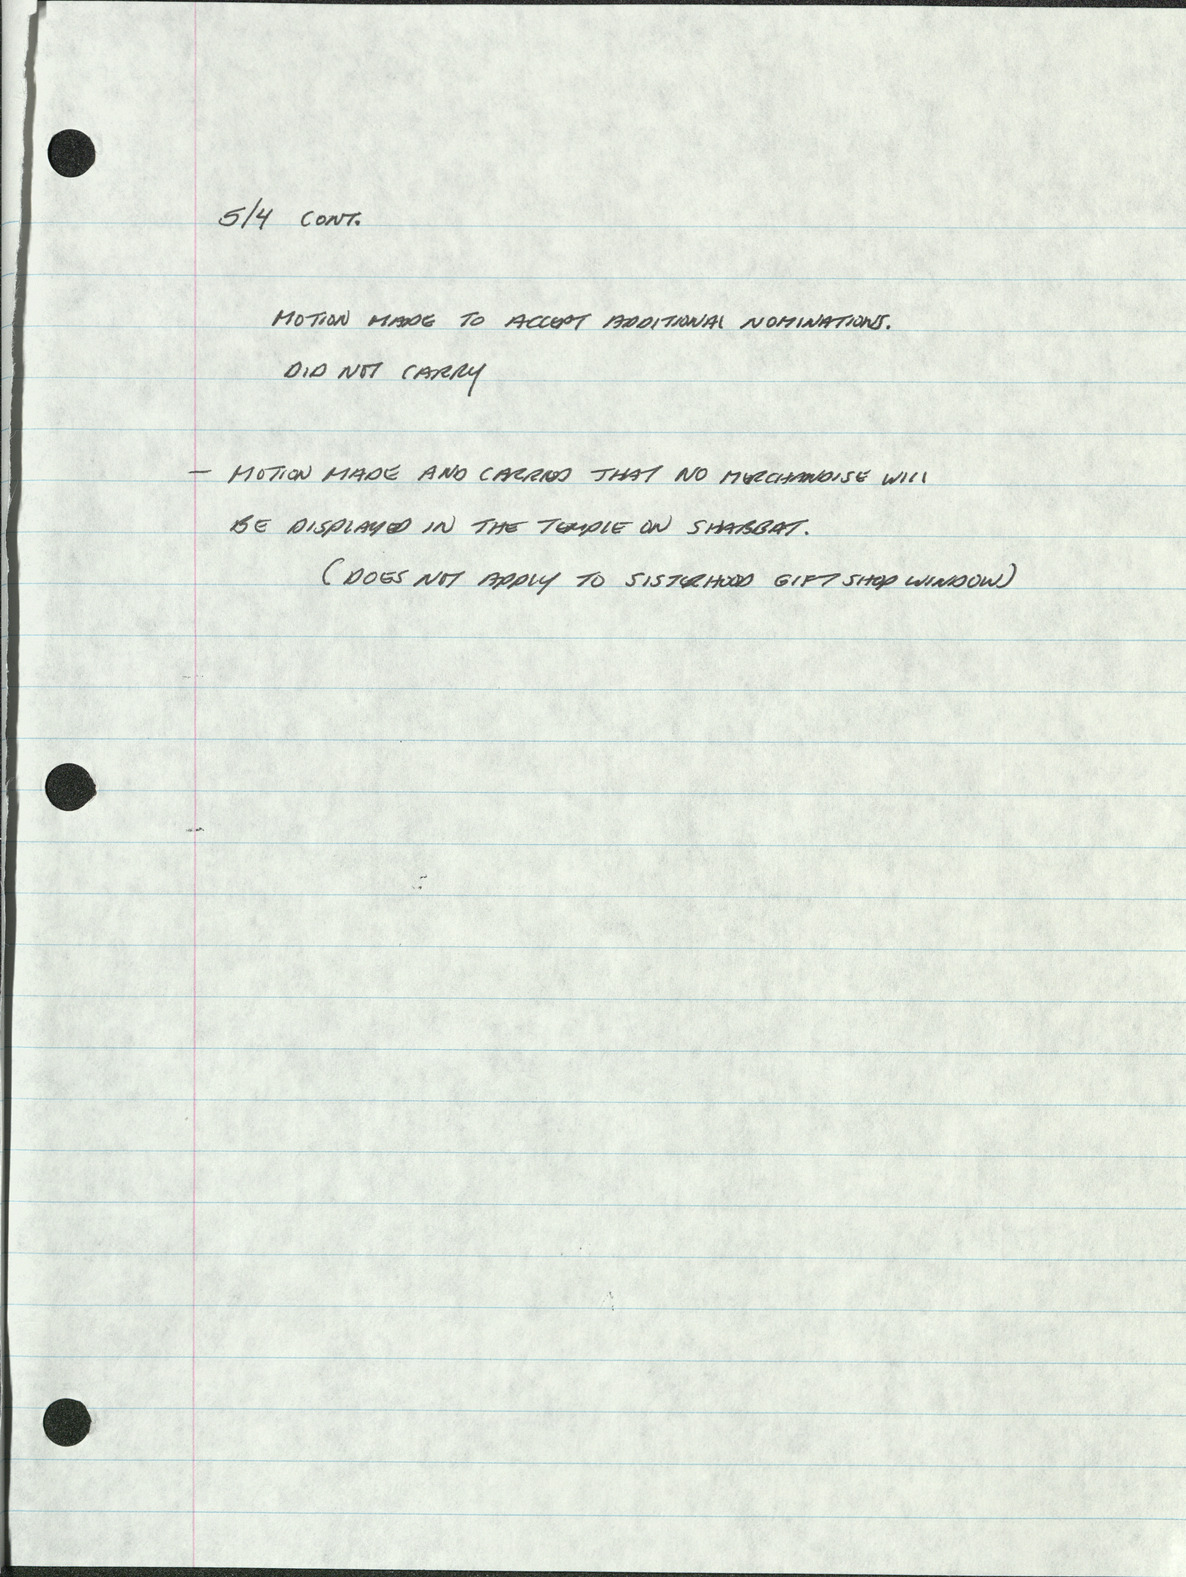 5/4 CONT.
MOTION MADE TO ACCEPT ADDITIONAL NOMINATIONS.
DID NOT CARRY
— MOTION MADE AND CARRIED THAT NO MERCHANDISE WILL
BE DISPLAYED IN THE TEMPLE ON SHABBAT.
(DOES NOT APPLY TO SISTERHOOD GIFT SHOP WINDOW)